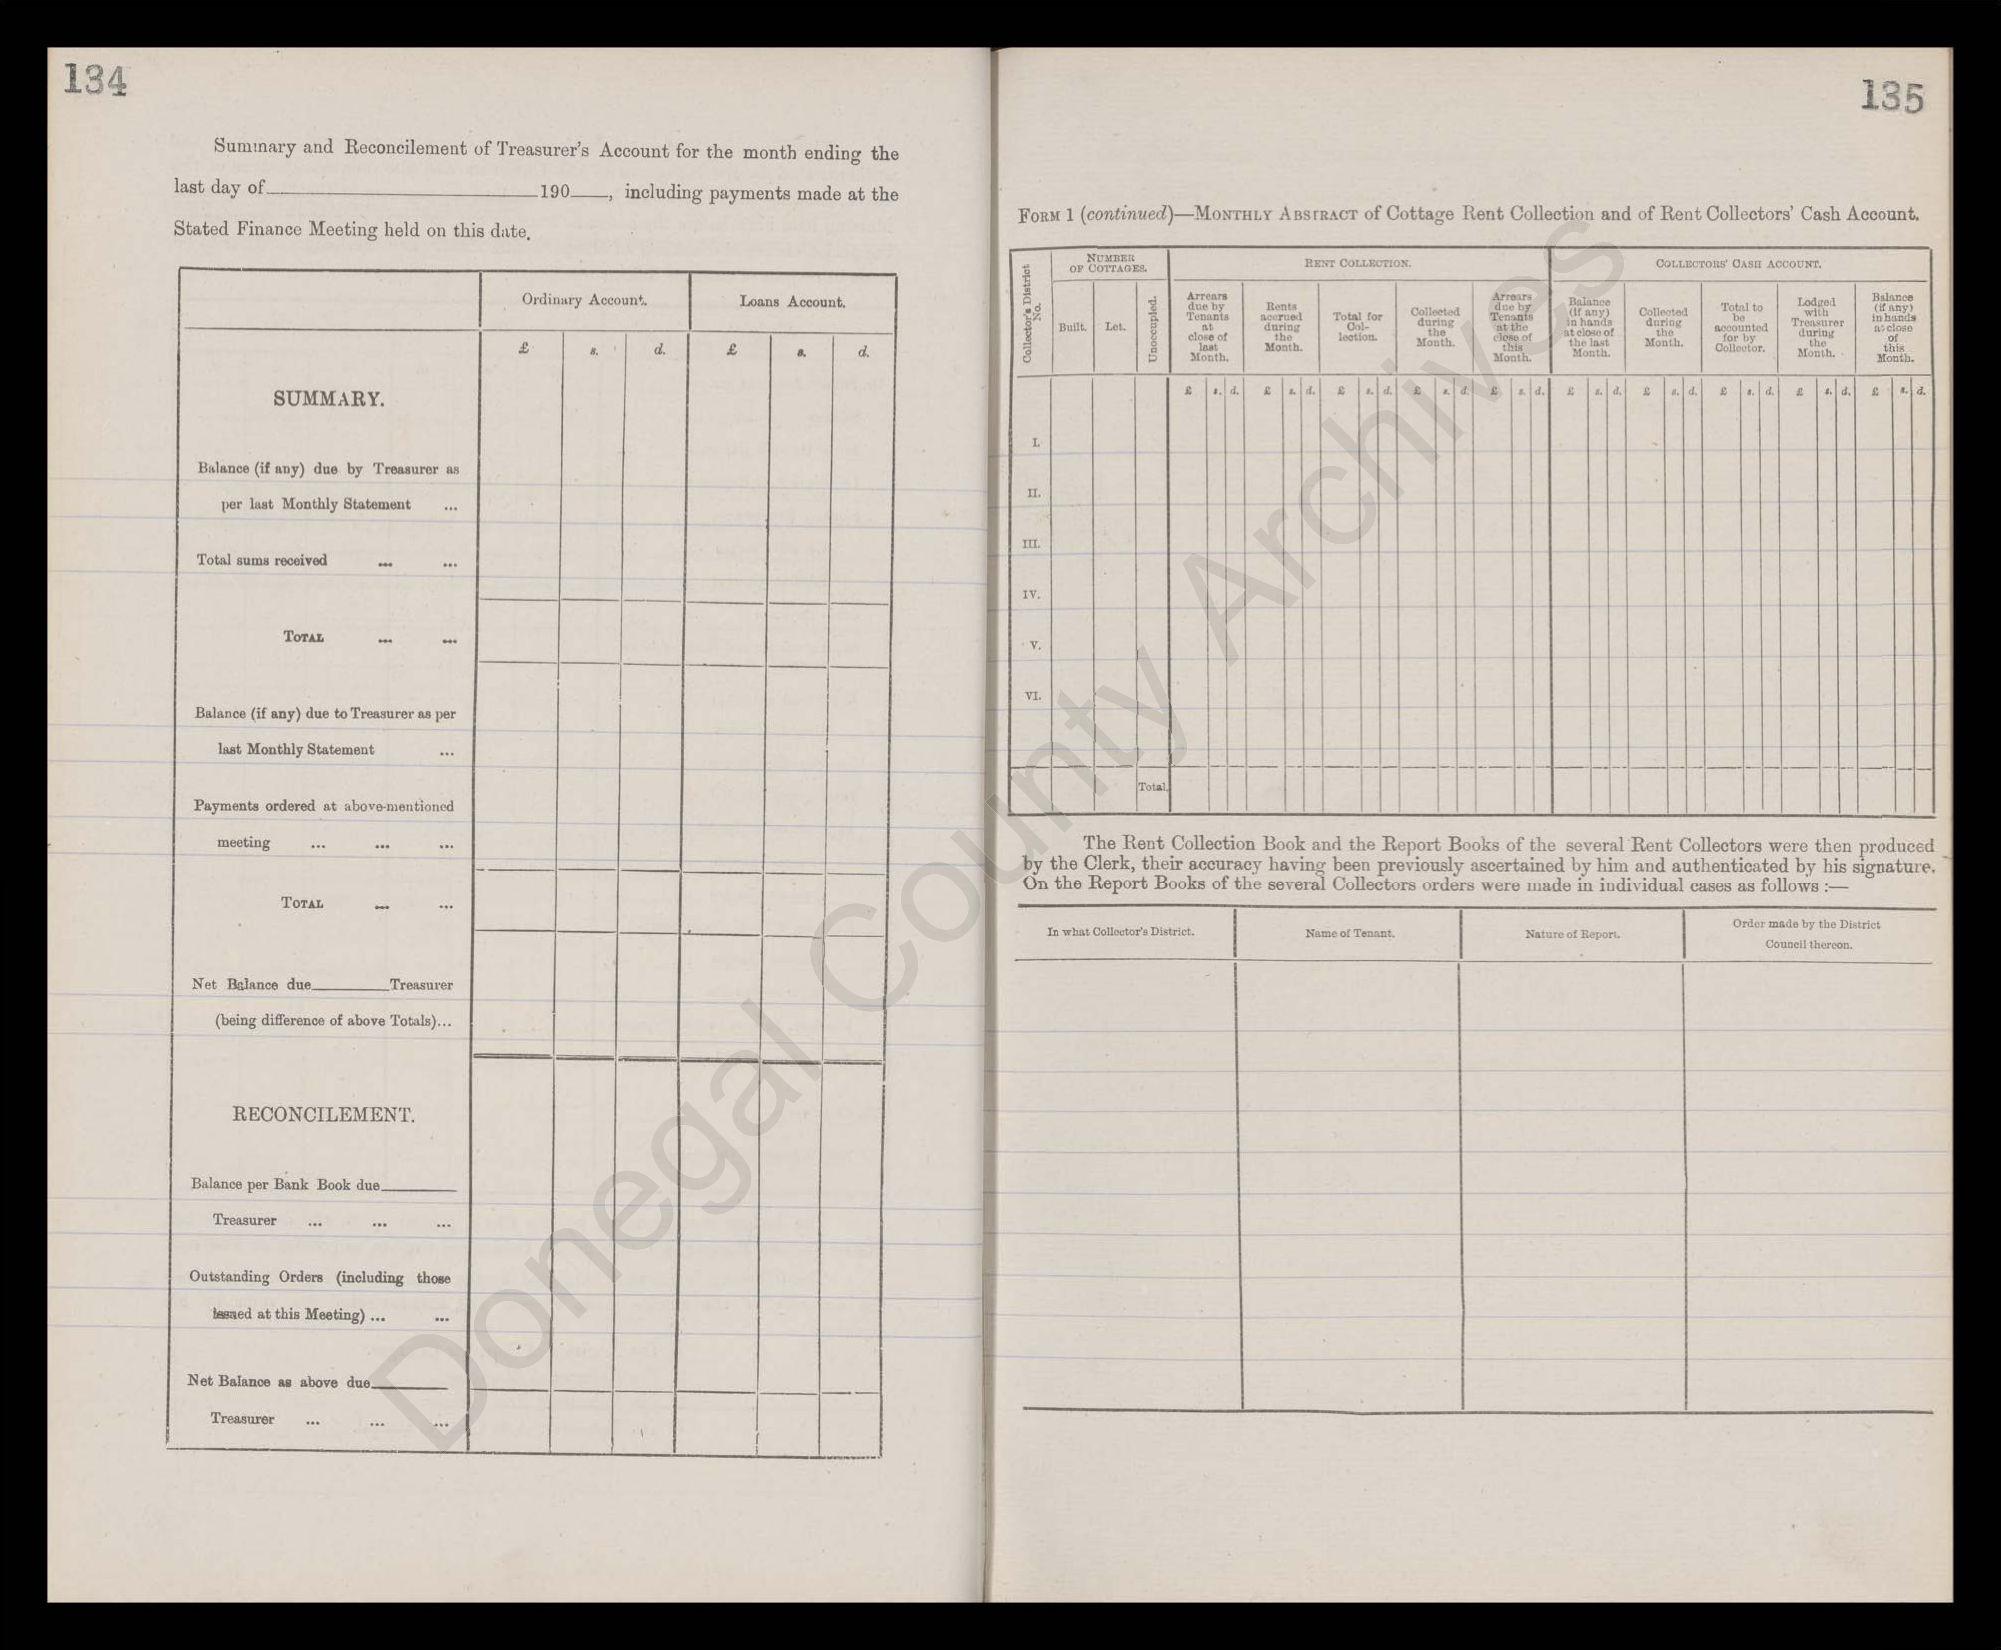 134
Summary and Reconcilement of Treasurer's Account for the month ending the
last day of 190 , including payments made at the
Stated Finance Meeting held on this date.
Ordinary Account. Loans Account.
£ s. d. £ s. d.
SUMMARY.
Balance (if any) due by Treasurer as
per last Monthly Statement ...
Total sums received ... ...
TOTAL ... ...
Balance (if any) due to Treasurer as per
last Monthly Statement ...
Payments ordered at above-mentioned
meeting ... ... ...
TOTAL ... ...
Net Balance due Treasurer
(being difference of above Totals)...
RECONCILEMENT.
Balance per Bank Book due
Treasurer ... ... ...
Outstanding Orders (including those
issued at this Meeting) ... ...
Net Balance as above due
Treasurer ... ... ...
135
FORM 1 (continued)—MONTHLY ABSTRACT of Cottage Rent Collection and of Rent Collectors' Cash Account.
Collector's District
No.
NUMBER
OF COTTAGES.
Built. Let. Unoccupied.
RENT COLLECTION.
Arrears
due by
Tenants
at
close of
last
Month.
Rents
accrued
during
the
Month.
Total for
Col-
lection.
Collected
during
the
Month.
Arrears
due by
Tenants
at the
close of
this
Month.
COLLECTORS' CASH ACCOUNT.
Balance
(if any)
in hands
at close of
the last
Month.
Collected
during
the
Month.
Total to
be
accounted
for by
Collector.
Lodged
with
Treasurer
during
the
Month.
Balance
(if any)
in hands
at close
of
this
Month.
£ s. d. £ s. d. £ s. d. £ s. d. £ s. d. £ s. d. £ s. d. £ s. d. £ s. d. £ s. d.
I.
II.
III.
IV.
V.
VI.
Total.
The Rent Collection Book and the Report Books of the several Rent Collectors were then produced
by the Clerk, their accuracy having been previously ascertained by him and authenticated by his signature.
On the Report Books of the several Collectors orders were made in individual cases as follows :—
In what Collector's District. Name of Tenant. Nature of Report. Order made by the District
Council thereon.
Donegal County Archives